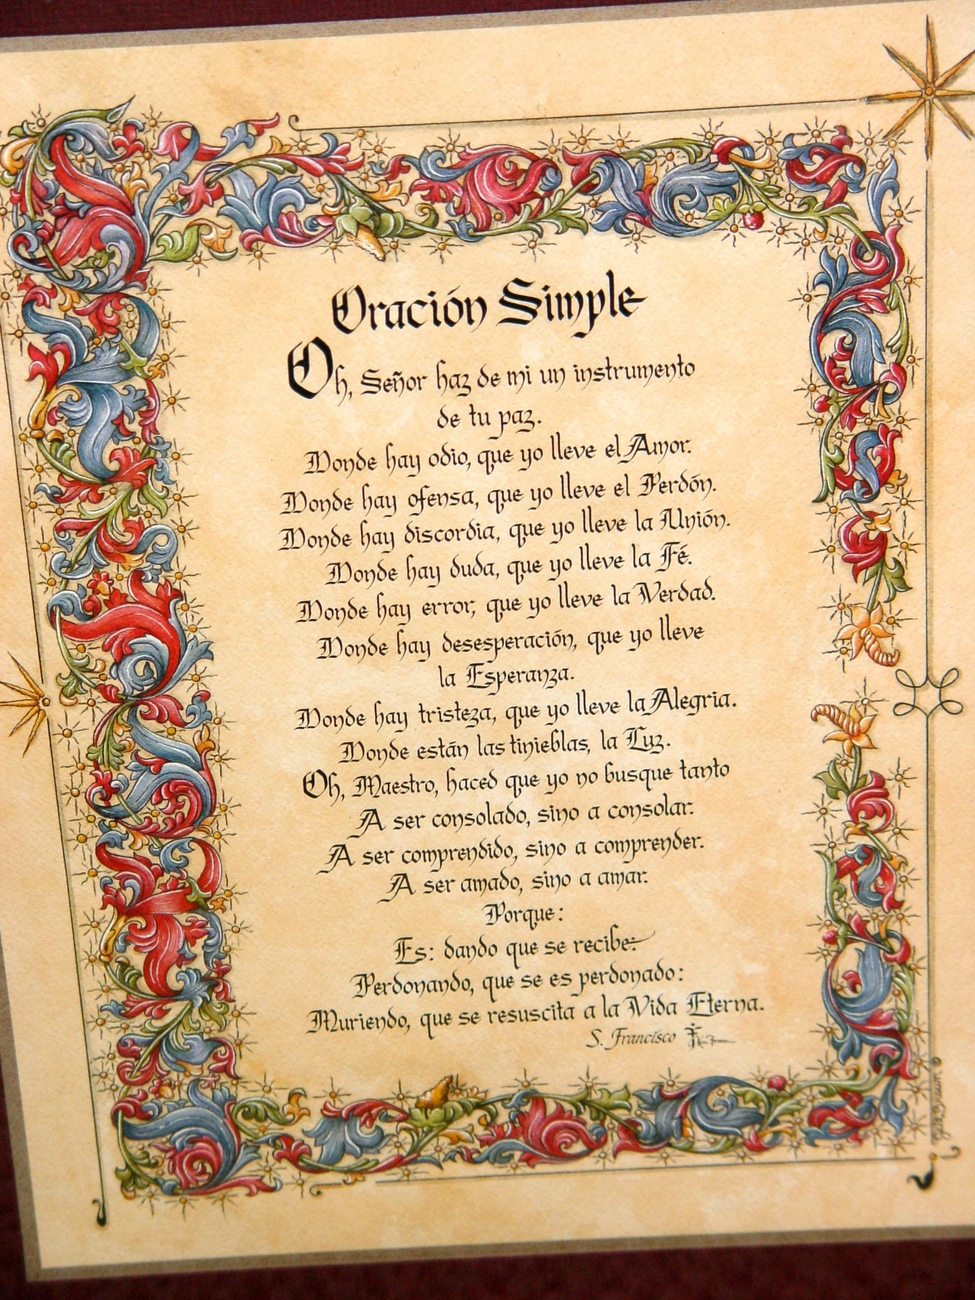 Oración Simple
Oh, Señor haz de mi un instrumento
de tu paz.
Donde hay odio, que yo lleve el Amor.
Donde hay ofensa, que yo lleve el Perdón.
Donde hay discordia, que yo lleve la Unión.
Donde hay duda, que yo lleve la Fé.
Donde hay error, que yo lleve la Verdad.
Donde hay desesperación, que yo lleve
la Esperanza.
Donde hay tristeza, que yo lleve la Alegria.
Donde están las tinieblas, la Luz.
Oh, Maestro, haced que yo no busque tanto
A ser consolado, sino a consolar.
A ser comprendido, sino a comprender.
A ser amado, sino a amar.
Porque:
Es: dando que se recibe:
Perdonando, que se es perdonado:
Muriendo, que se resuscita a la Vida Eterna.
S. Francisco